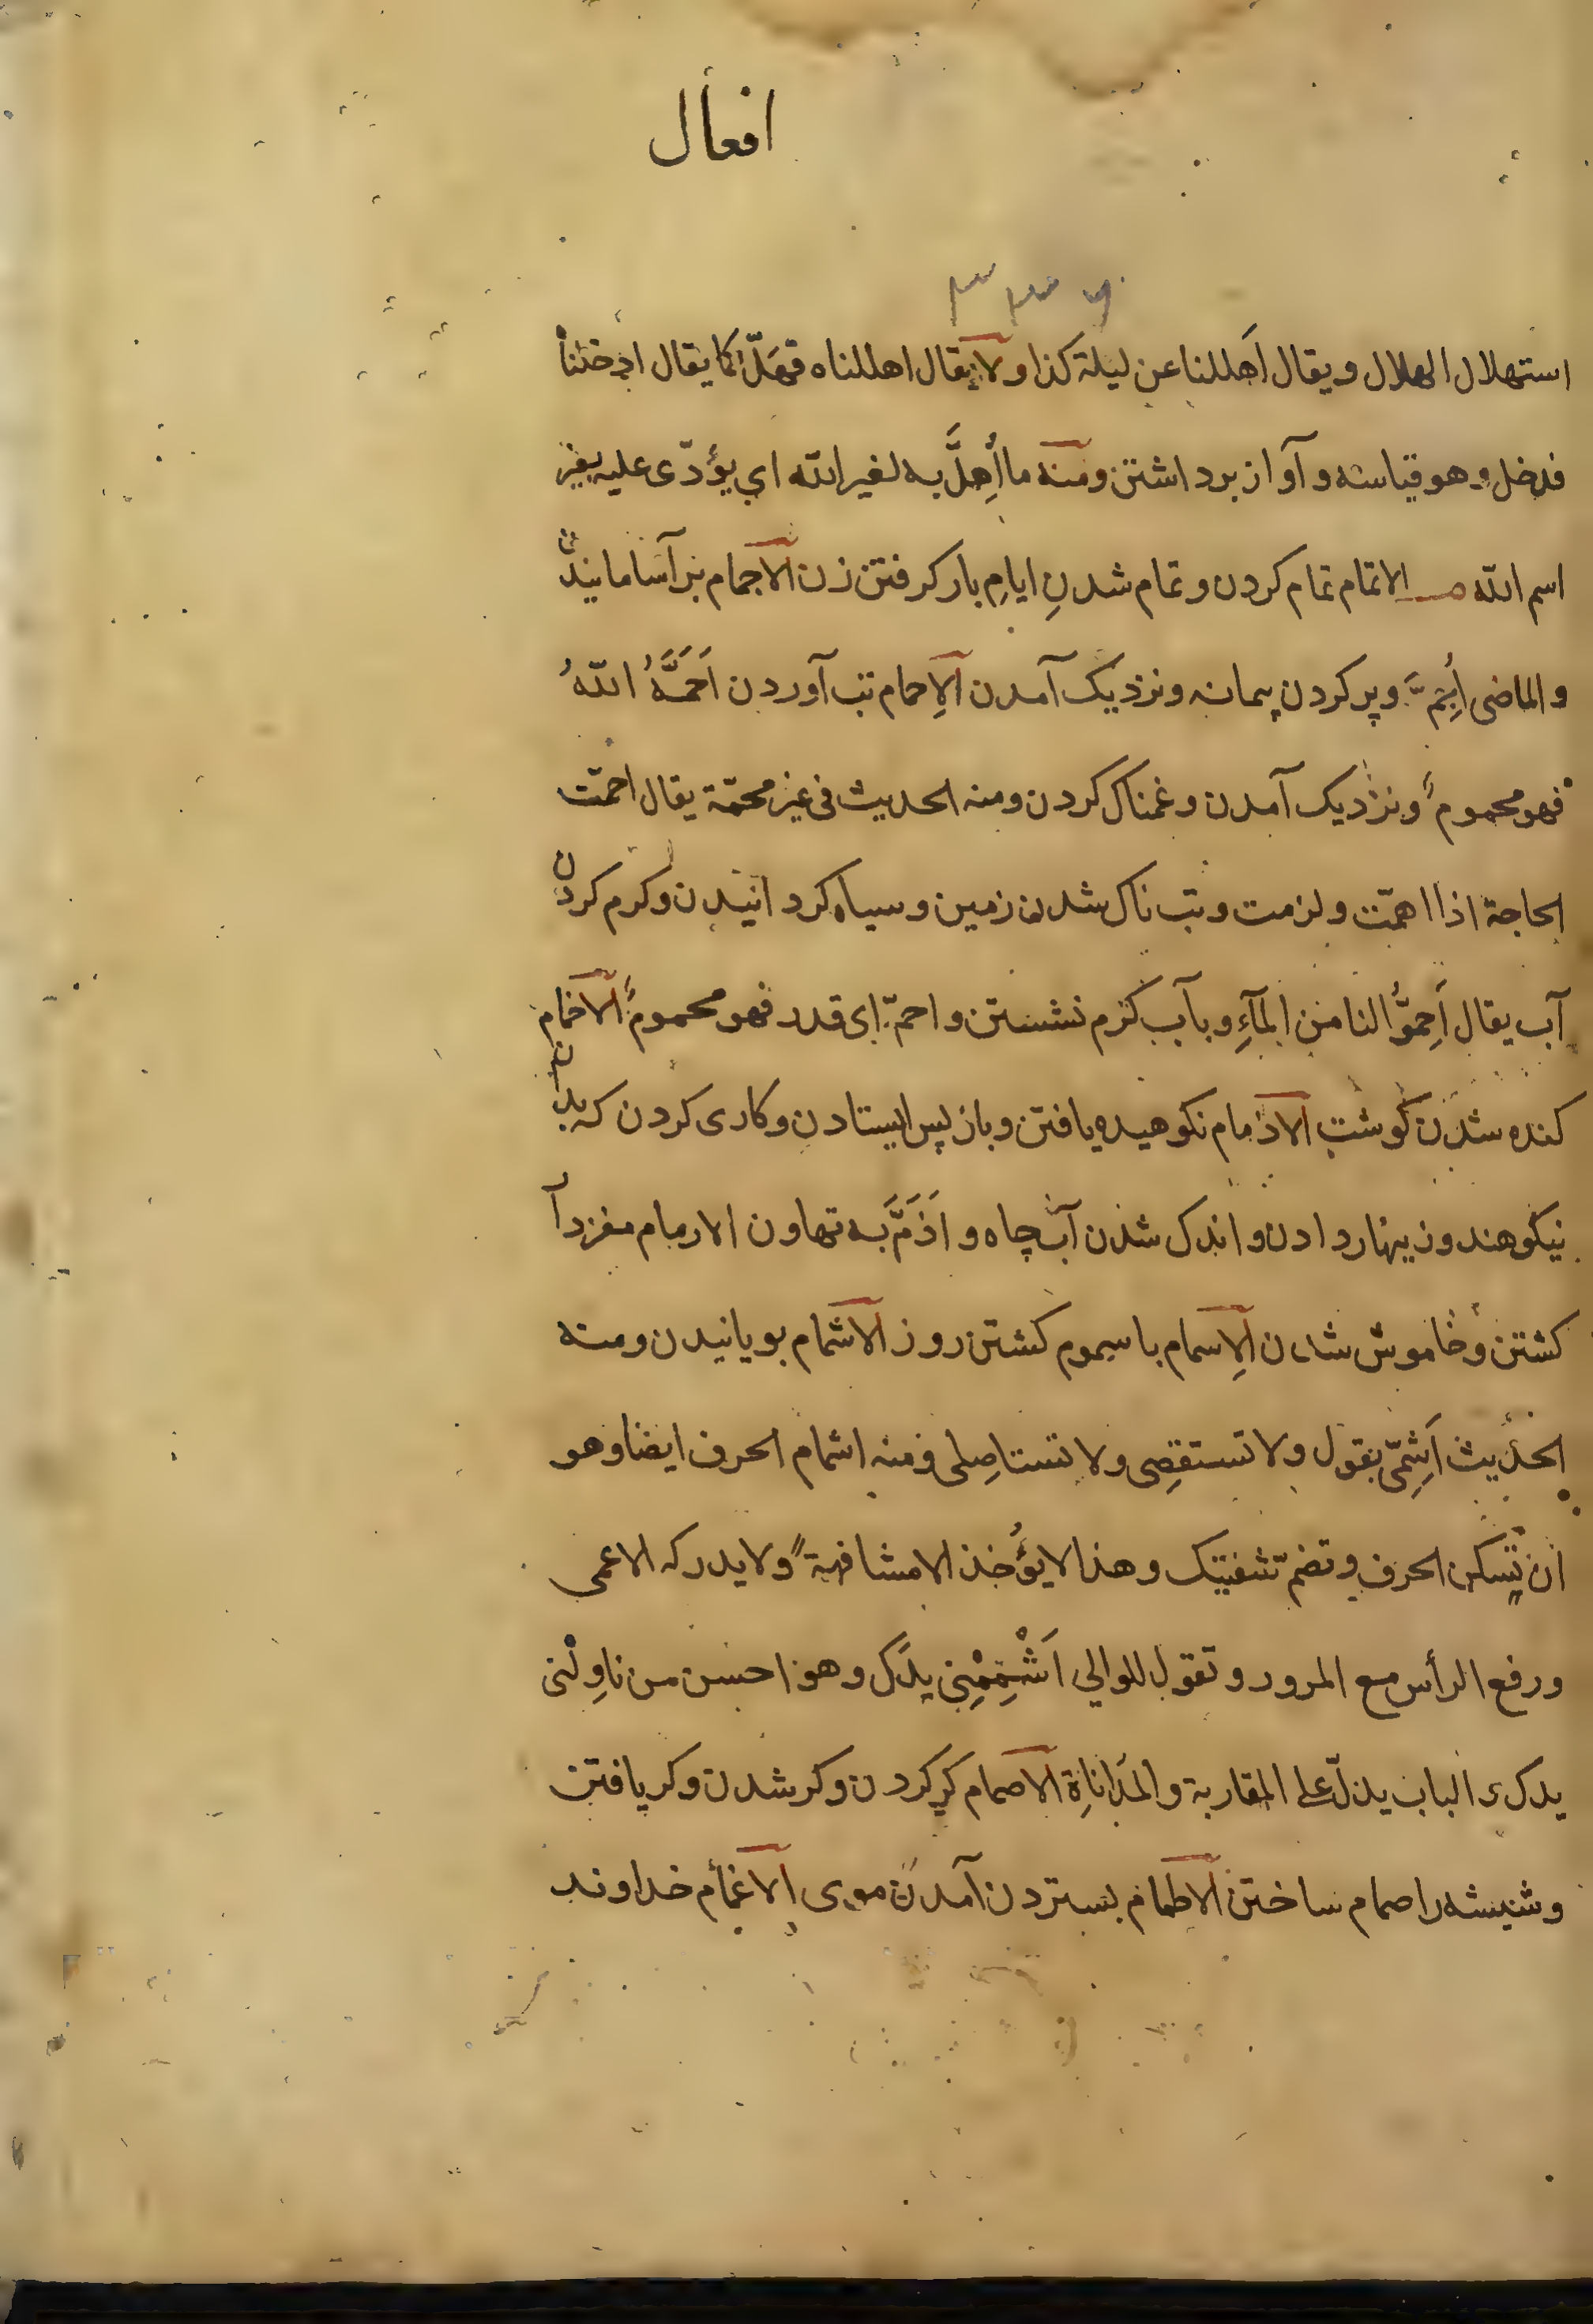 افعال
استهلال الهلال و يقال اَهللنا عن ليلة كذا و لا يقال اهللناه فَهَلّ كما يقال ادخلناهُ
فدخل و هو قياسه و آواز برداشتن و منه ما اُهِلَّ به لغير الله اي يؤدّى عليه بغير
اسم الله الاتمام تمام كردن و تمام شدنِ ايامِ بار كرفتن زن الاجمام برآسامانيدن
و الماضى أجِمّ و پر كردن پيمانه و نزديک آمدن الاِحمام تب آوردن اَحَمَّهُ اللهُ
فهو محموم و نزديک آمدن و غمناک كردن و منه الحديث فى غير محمّة يقال احمّت
الحاجة اذا اهمّت و لزمت و تب ناک شدن زمين و سياه كردانيدن و كرم كردن
آب يقال اَحِمّوا لنا من المآءِ و بآب كرم نشستن و احمّ اى قدر فهو محموم الاخمام
كنده شدن كوشت الاذمام نكوهيده يافتن و باز پس ايستادن و كارى كردن كه بدان
نيكوهند و زينهار دادن و اندک شدن آب چاه و اَذَمَّ به تهاون الارمام مغزدار
كشتن و خاموش شدن الاِسمام با سموم كشتن روز الاشمام بويانيدن و منه
الحديث اَشِمّى بقول و لا تستقصِى و لا تستاصِلى و منه اشمام الحرف ايضا و هو
ان تسكن الحرف و تضمّ شفتيک و هذا لا يؤُخذ الا مشافهةً و لا يدركه الاعمى
و رفع الرأس مع المرور و تقول للوالي اَشْمِمْنِى يدَک و هو احسن من ناوِلْنى
يدک و الباب يدلّ على المقاربة و المدَاناةِ الاصمام كر كردن و كر شدن و كر يافتن
و شيشه را صمام ساختن الاطمام بستردن آمدن موى الاغمام خداوند